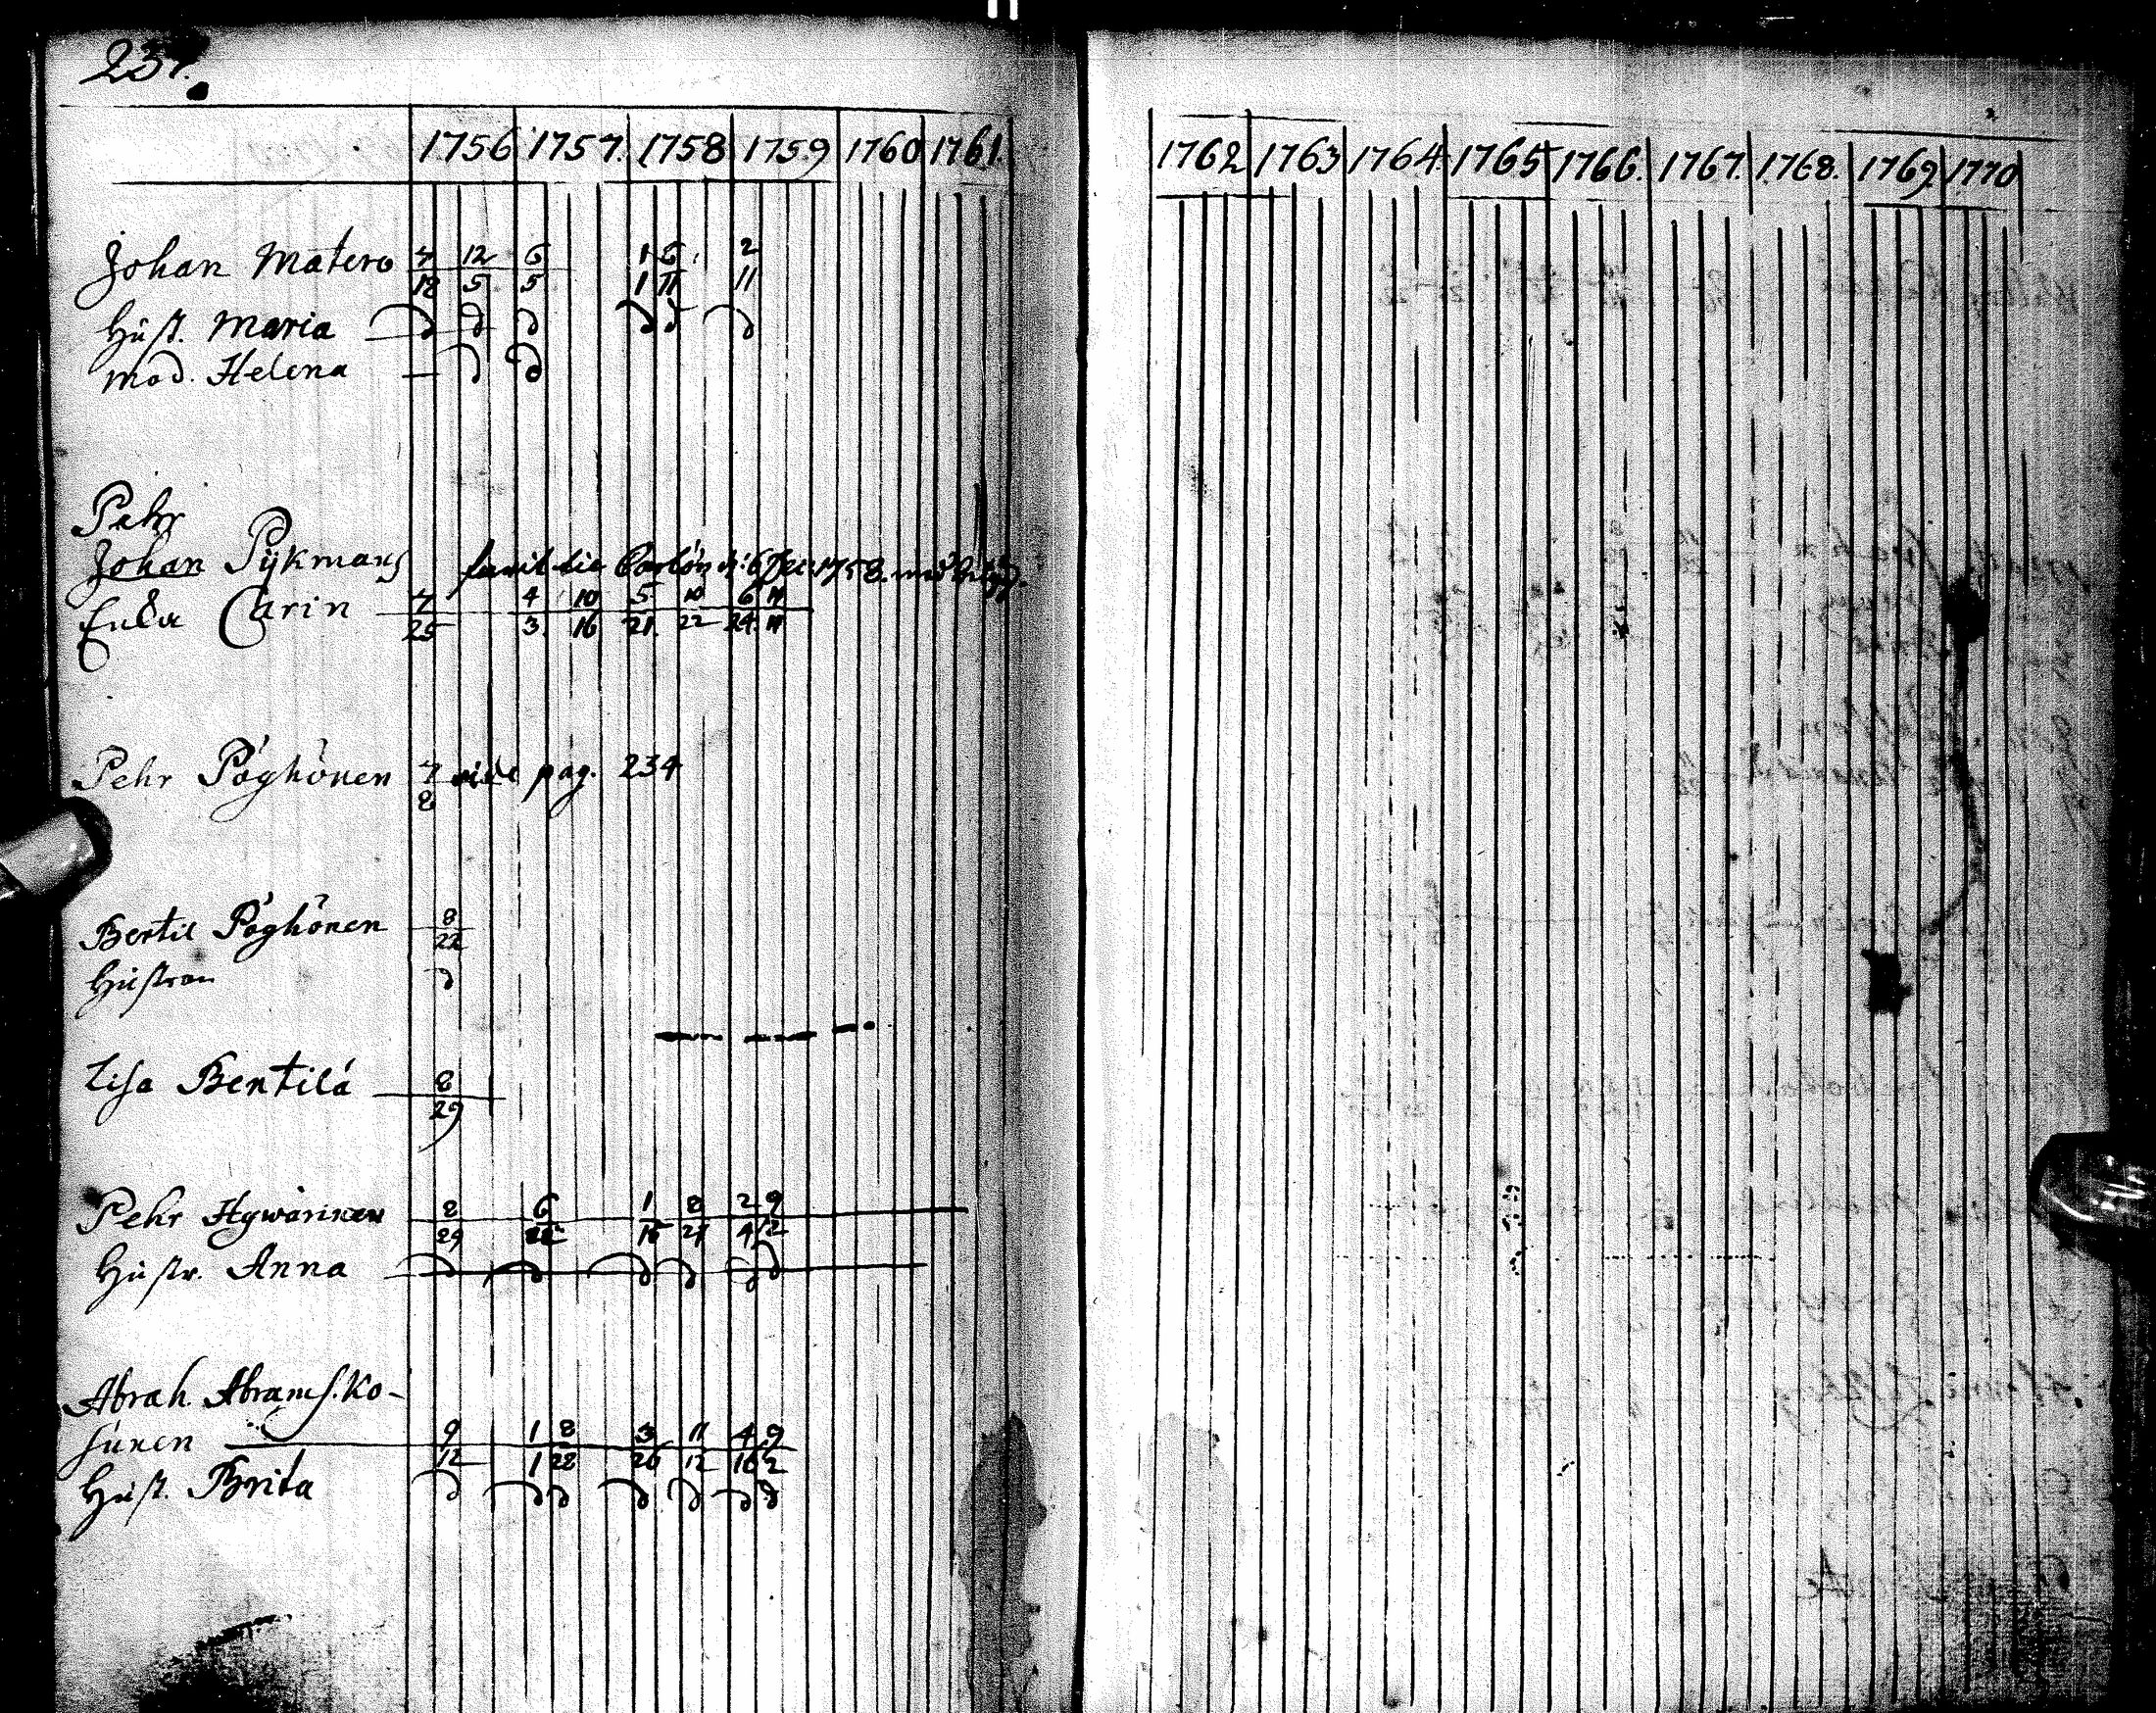 237.
1756 1757. 1758 1759 1760 1761. 1762 1763 1764. 1765 1766. 1767. 1768. 1769. 1770
Johan Matero 4/18 12/5 6/5 1/1 6/11 2/11
Hust. Maria
Mod. Helena
Pehr
Johan Pÿkmans 1758
Enka Carin 4/25 4/3 10/16 5/21 10/22 6/24 11/11
Pehr Påghönen 4/8 vide pag. 234
Bertil Påghönen 8/22
Hustron
Lisa Bentilä 8/29
Pehr Hywärinen 8/29 6/22 1/15 8/21 2/4 9/12
Hustr. Anna
Abrah. Abramss. Ko-
sunen 9/12 1/1 8/28 3/26 11/12 4/16 9/2
Hust. Brita